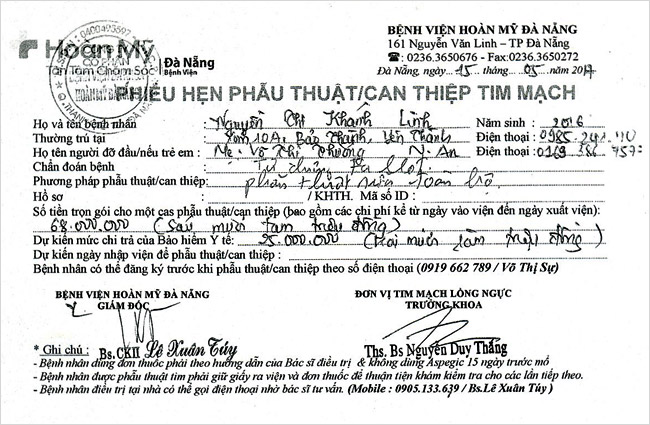 Hoàn Mỹ
Đà Nẵng
Bệnh Viện
Tận Tâm Chăm Sóc
BỆNH VIỆN HOÀN MỸ ĐÀ NẴNG
161 Nguyễn Văn Linh – TP Đà Nẵng
☎: 0236.3650676 - Fax:0236.3650272
Đà Nẵng, ngày 15 tháng 05 năm 2017
PHIẾU HẸN PHẪU THUẬT/CAN THIỆP TIM MẠCH
Họ và tên bệnh nhân : Nguyễn Thị Khánh Linh Năm sinh : 2016
Thường trú tại : Xóm 10A, Bảo Thành, Yên Thành Điện thoại :
Họ tên người đỡ đầu/nếu trẻ em : Mẹ: Võ Thị Phương N. An Điện thoại :
Chẩn đoán bệnh : Tứ chứng Fallot
Phương pháp phẫu thuật/can thiệp: phẫu thuật sửa toàn bộ
Hồ sơ : / KHTH. Mã số ID :
Số tiền trọn gói cho một cas phẫu thuật/can thiệp (bao gồm các chi phí kể từ ngày vào viện đến ngày xuất viện):
68.000.000 (Sáu mươi tám triệu đồng)
Dự kiến mức chi trả của Bảo hiểm Y tế: 25.000.000 (Hai mươi lăm triệu đồng)
Dự kiến ngày nhập viện để phẫu thuật/can thiệp :
Bệnh nhân có thể đăng ký trước khi phẫu thuật/can thiệp theo số điện thoại (0919 662 789 / Võ Thị Sự)
BỆNH VIỆN HOÀN MỸ ĐÀ NẴNG
GIÁM ĐỐC
ĐƠN VỊ TIM MẠCH LỒNG NGỰC
TRƯỞNG KHOA
Bs.CKII Lê Xuân Túy
Ths. Bs Nguyễn Duy Thăng
* Ghi chú :
- Bệnh nhân dùng đơn thuốc phải theo hướng dẫn của Bác sĩ điều trị & không dùng Aspegic 15 ngày trước mổ
- Bệnh nhân được phẫu thuật tim phải giữ giấy ra viện và đơn thuốc để thuận tiện khám kiểm tra cho các lần tiếp theo.
- Bệnh nhân điều trị tại nhà có thể gọi điện thoại nhờ bác sĩ tư vấn. (Mobile : 0905.133.639 / Bs.Lê Xuân Túy )